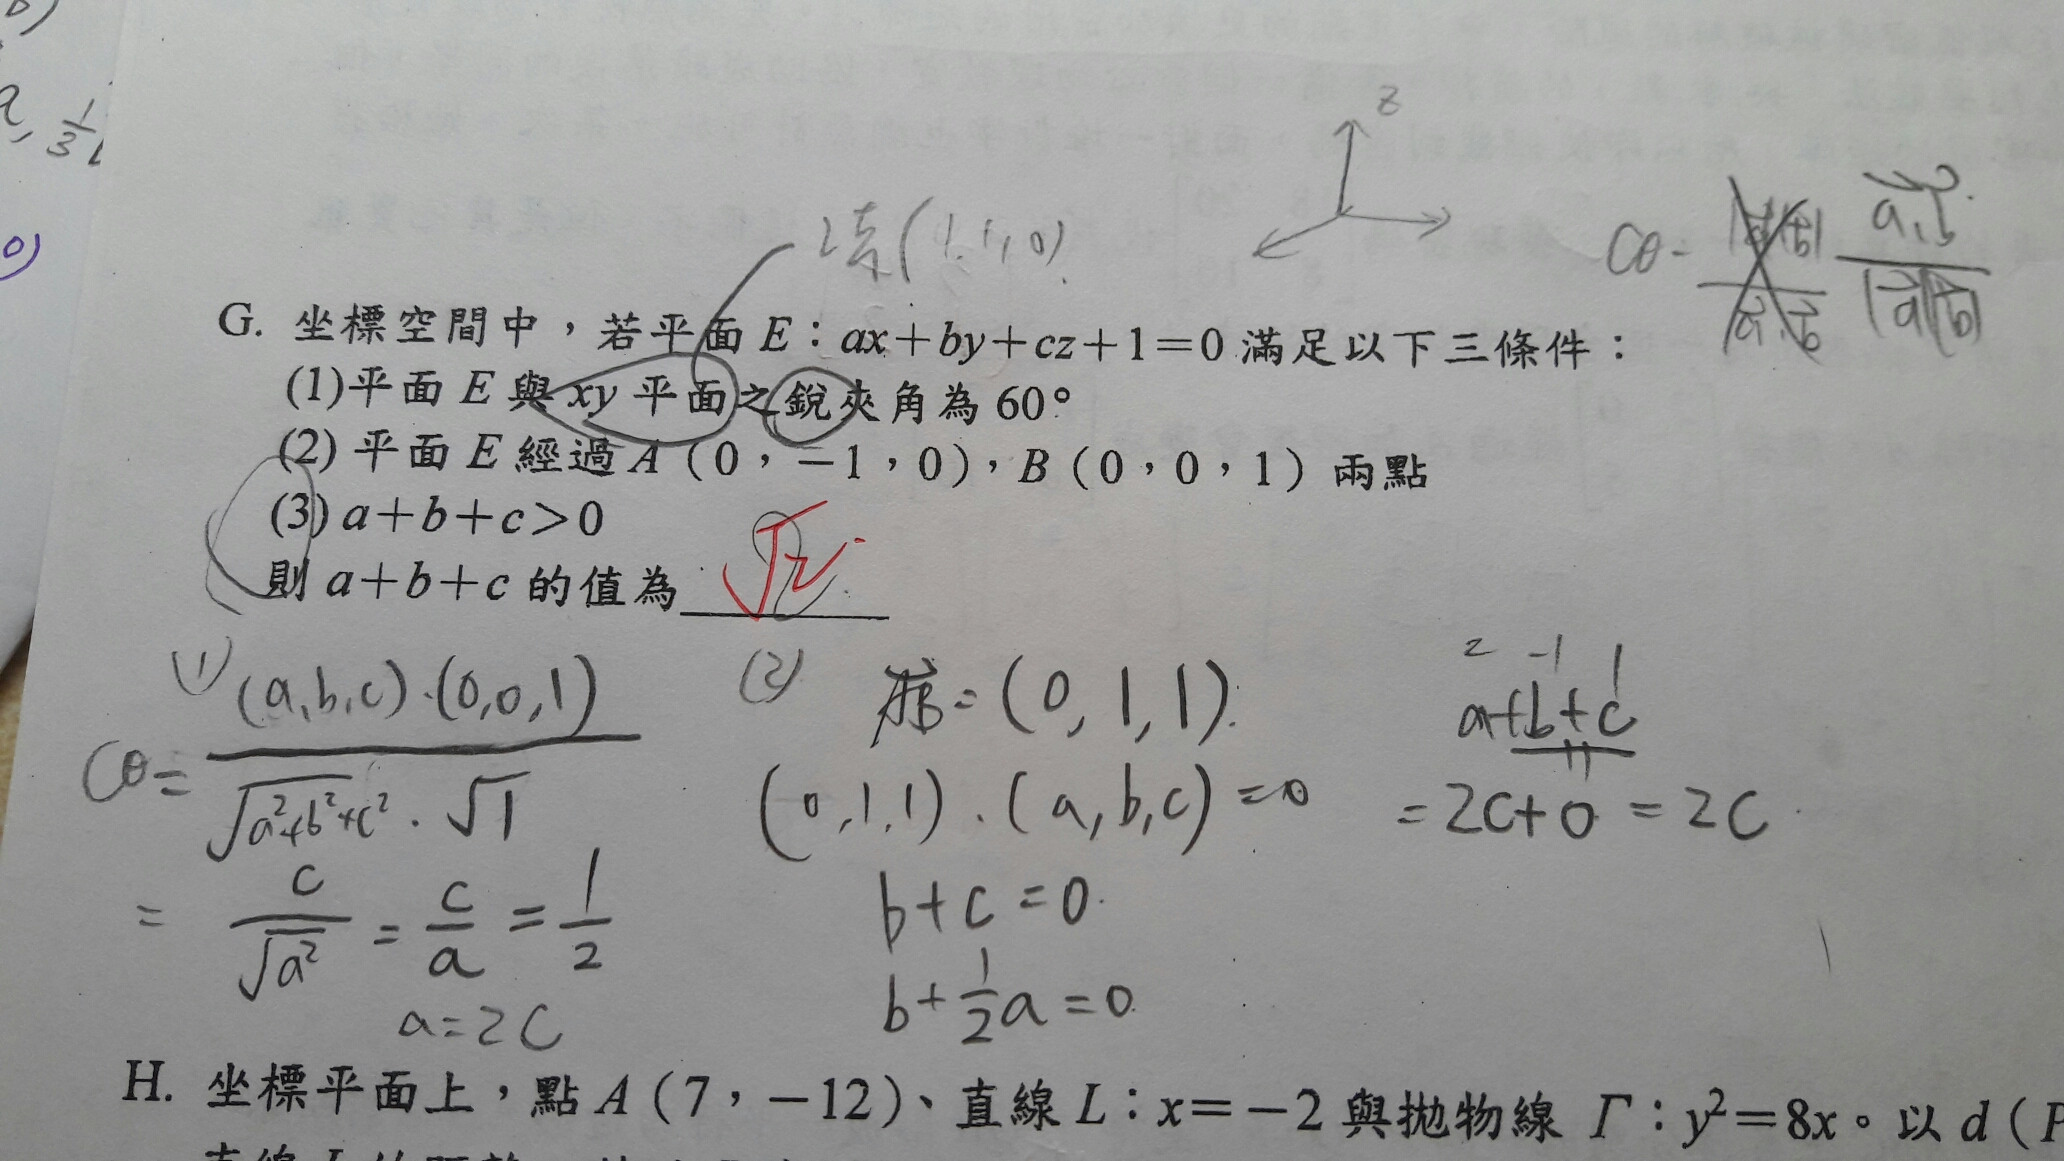 0)
1
3
z
法(1,1,0)
Cθ=
a·b
|a||b|
G. 坐標空間中,若平面 E:ax+by+cz+1=0 滿足以下三條件:
(1)平面 E 與 xy 平面之銳夾角為 60°
(2) 平面 E 經過 A(0,-1,0),B(0,0,1)兩點
(3) a+b+c>0
則 a+b+c 的值為 √2
(1) (a,b,c)·(0,0,1)
Cθ=
√a²+b²+c² · √1
= c/√a² = c/a = 1/2
a=2c
(2) AB=(0,1,1)
(0,1,1)·(a,b,c)=0
b+c=0
b+1/2a=0
2 -1 1
a+b+c
=2c+0=2c
H. 坐標平面上,點 A(7,-12)、直線 L:x=-2 與拋物線 Γ:y²=8x。以 d(P